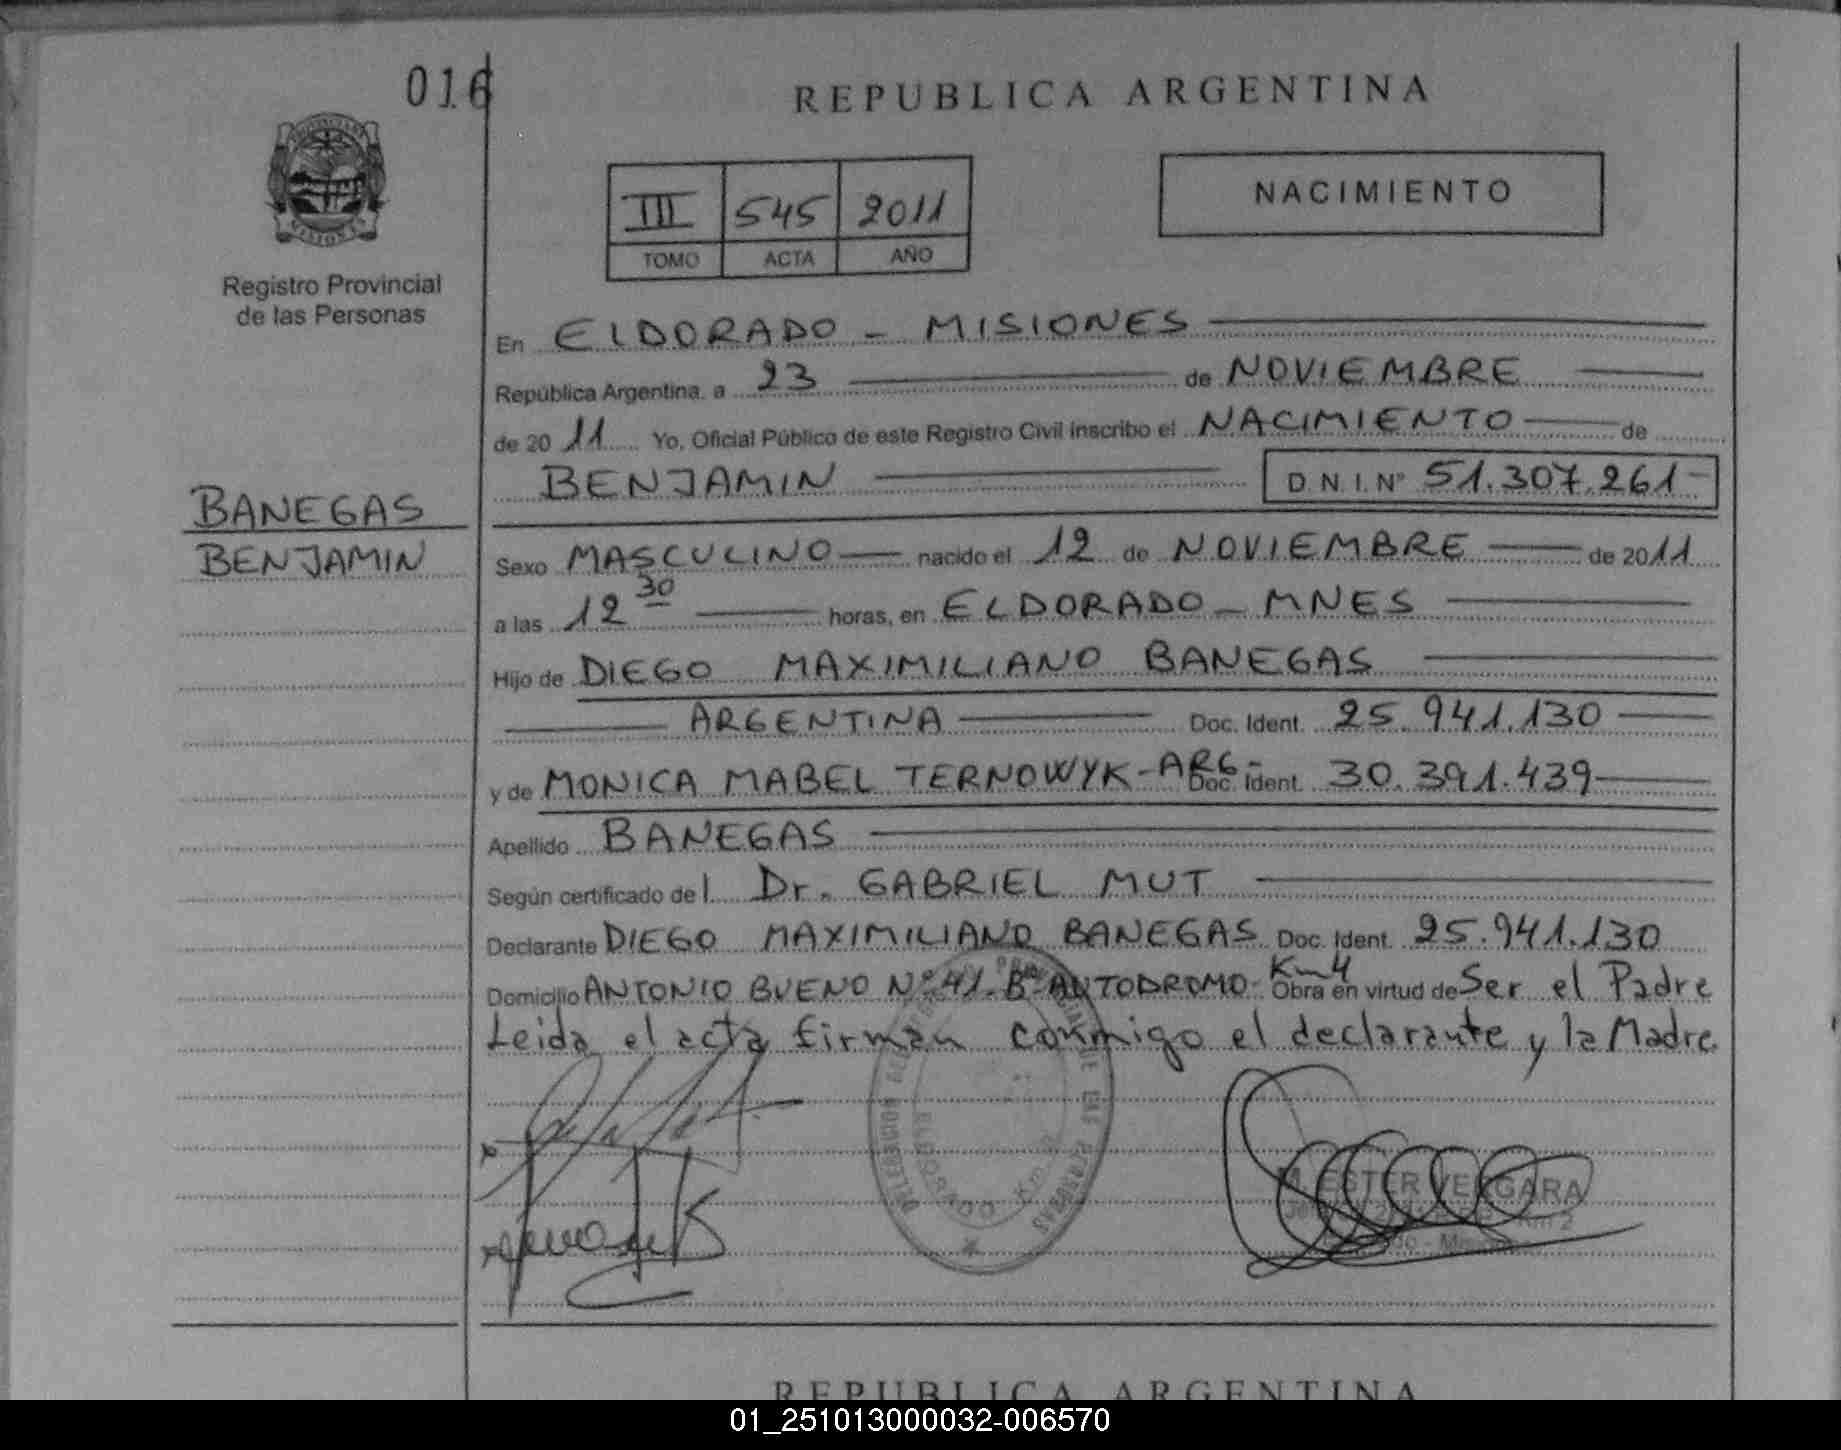 016
REPUBLICA ARGENTINA
NACIMIENTO
III 545 2011
TOMO ACTA AÑO
Registro Provincial
de las Personas
En ELDORADO - MISIONES
República Argentina, a 23 de NOVIEMBRE
de 2011 Yo, Oficial Público de este Registro Civil inscribo el NACIMIENTO de
BENJAMIN D.N.I.Nº 51.307.261-
BANEGAS
BENJAMIN
Sexo MASCULINO nacido el 12 de NOVIEMBRE de 2011
a las 12 30 horas, en ELDORADO - MNES
Hijo de DIEGO MAXIMILIANO BANEGAS
ARGENTINA Doc. Ident. 25.941.130
y de MONICA MABEL TERNOWYK-ARG- Doc. Ident. 30.391.439
Apellido BANEGAS
Según certificado del Dr. GABRIEL MUT
Declarante DIEGO MAXIMILIANO BANEGAS Doc. Ident. 25.941.130
Domicilio ANTONIO BUENO Nº 41. Bº AUTODROMO- Km 4 Obra en virtud de Ser el Padre
Leida el acta firman conmigo el declarante y la Madre.
DELEGACION PERSONAS
ELDORADO Km
M. ESTER VERGARA
Km 2
REPUBLICA ARGENTINA
01_251013000032-006570